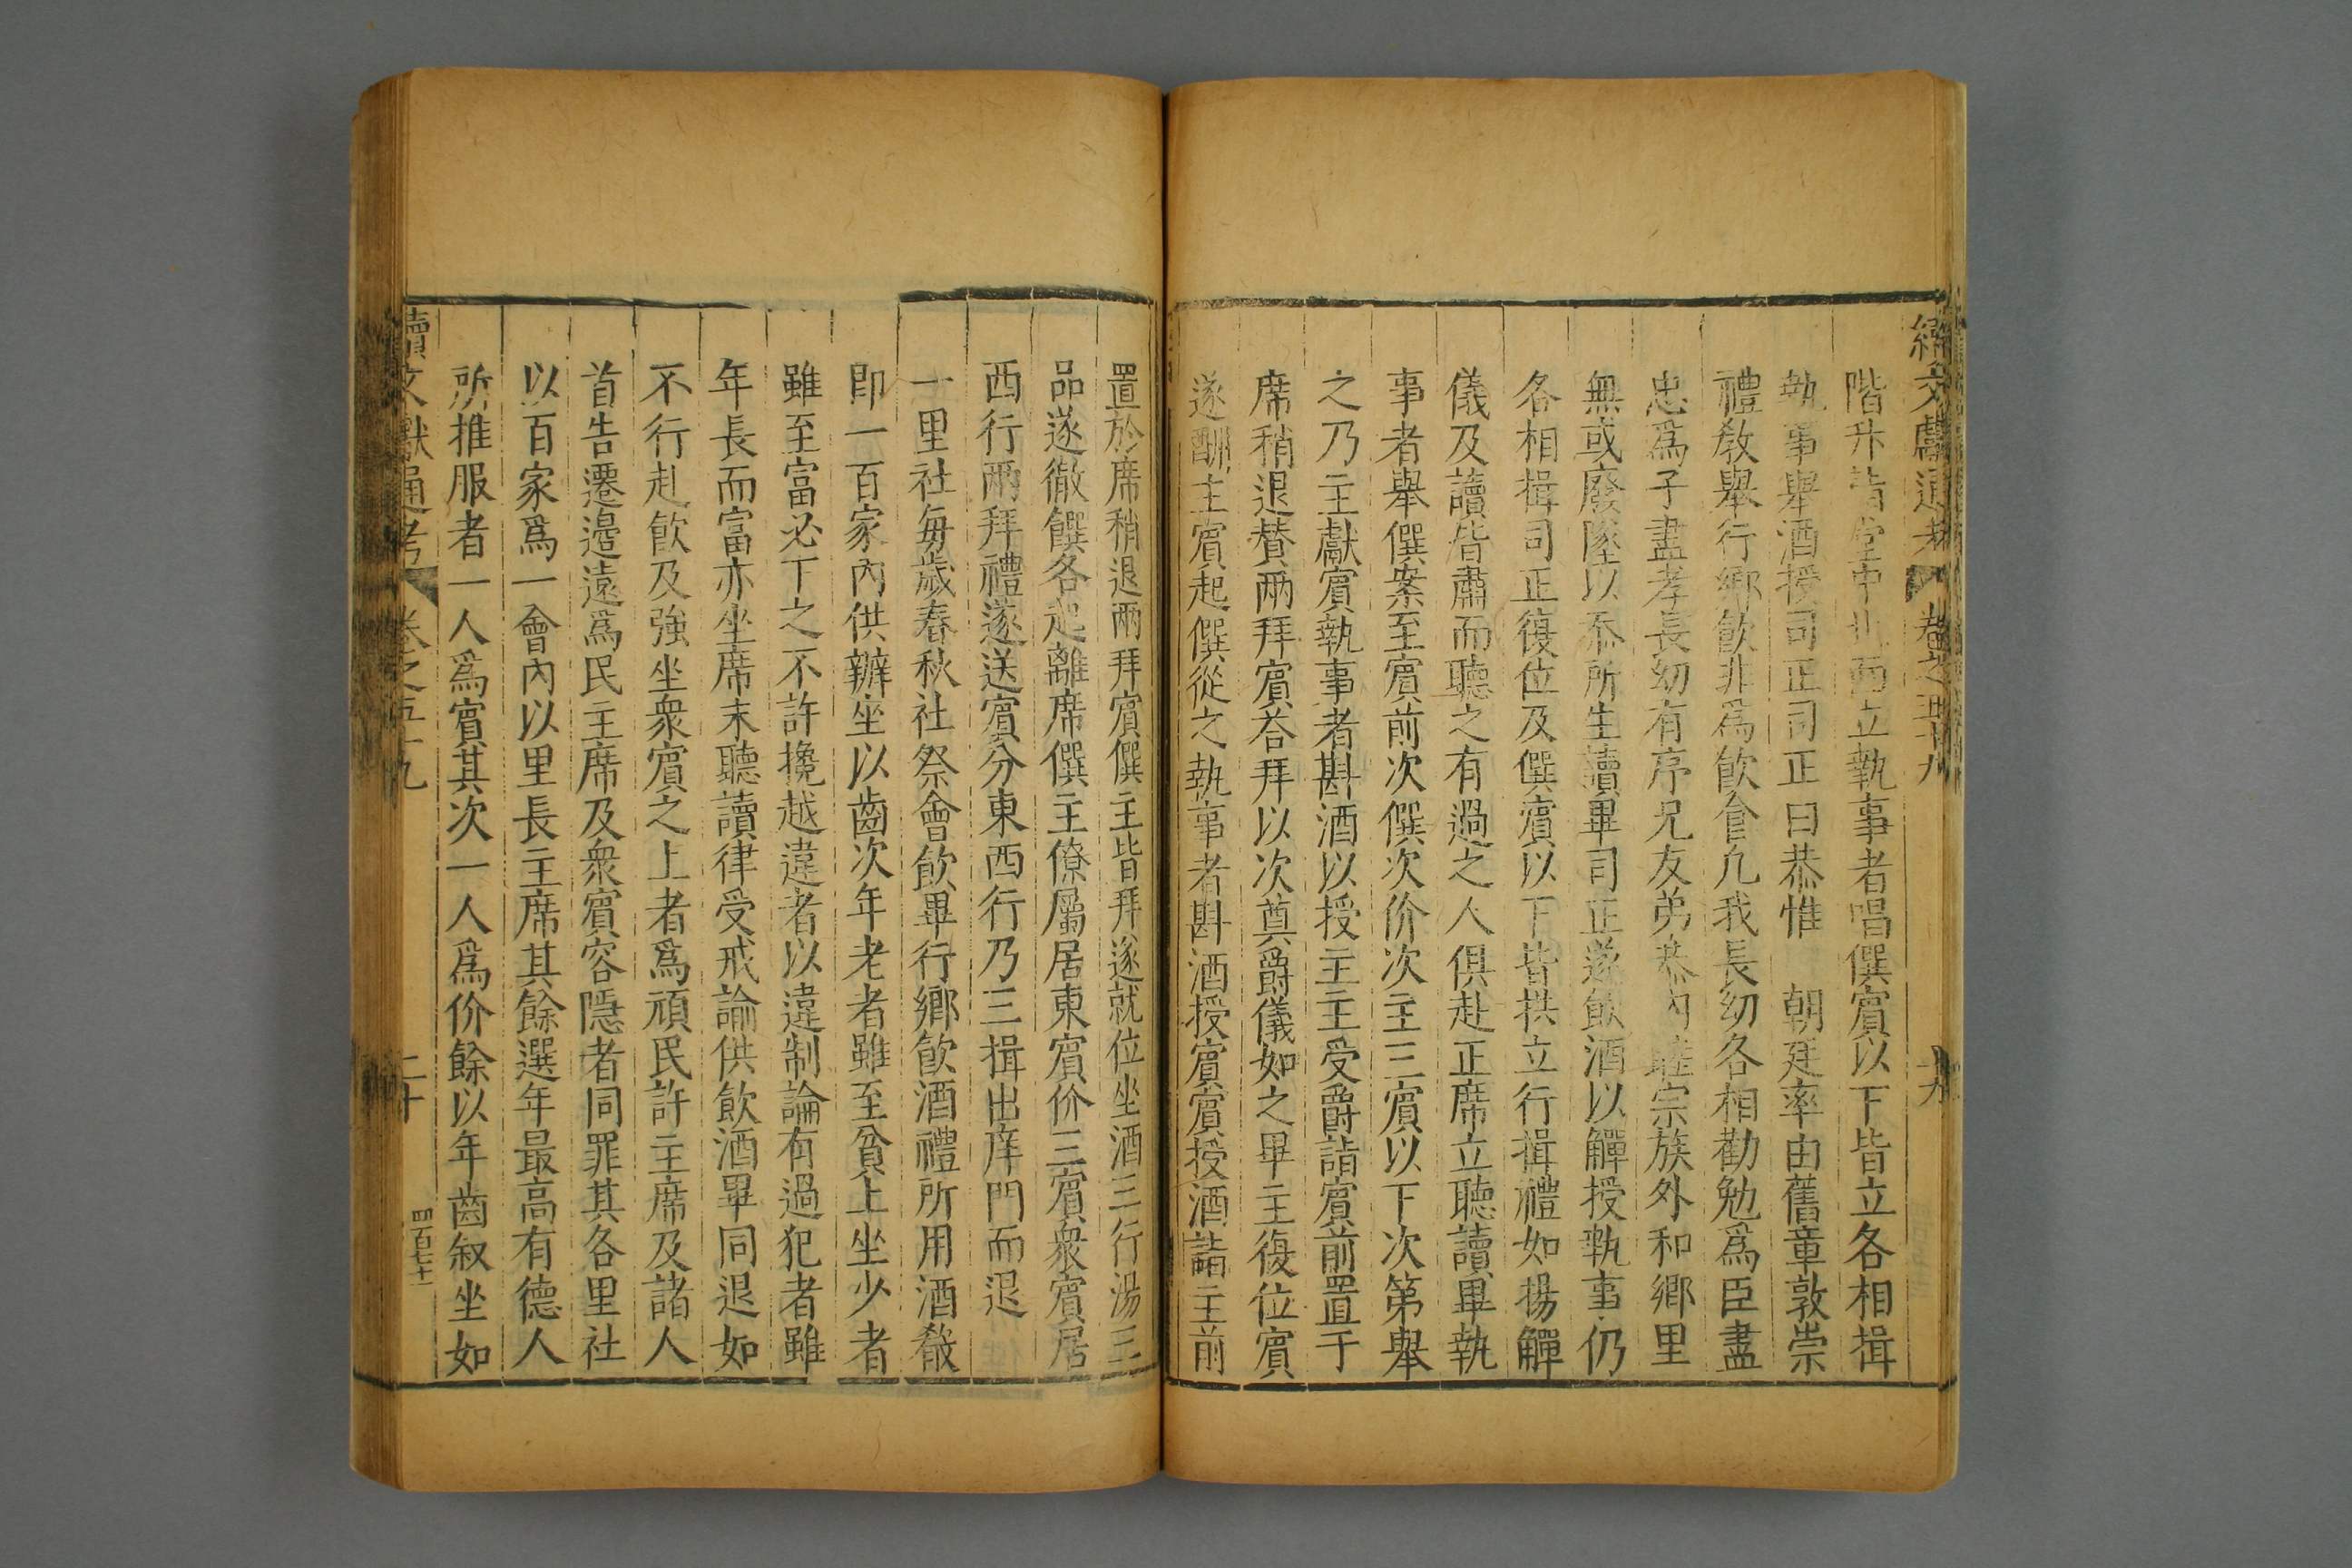 續文獻通考 卷之五十九 十九
階升詣堂中北面立執事者唱僎賓以下皆立各相揖
執事舉酒授司正司正曰恭惟 朝廷率由舊章敦崇
禮教舉行鄉飲非爲飲食凢我長幼各相勸勉爲臣盡
忠爲子盡孝長幼有序兄友弟恭內睦宗族外和鄉里
無或廢墜以忝所生讀畢司正遂飲酒以觶授執事仍
各相揖司正復位及僎賓以下皆拱立行揖禮如揚觶
儀及讀皆肅而聽之有過之人俱赴正席立聽讀畢執
事者舉僎案至賓前次僎次介次主三賓以下次第舉
之乃主獻賓執事者斟酒以授主主受爵詣賓前置于
席稍退賛兩拜賓荅拜以次奠爵儀如之畢主復位賓
遂酬主賓起僎從之執事者斟酒授賓賓授酒詣主前
置於席稍退兩拜賓僎主皆拜遂就位坐酒三行湯三
品遂徹饌各起離席僎主僚屬居東賓介三賓衆賓居
西行兩拜禮遂送賓分東西行乃三揖出庠門而退
一里社每歲春秋社祭會飲畢行鄉飲酒禮所用酒殽
即一百家內供辦坐以齒次年老者雖至貧上坐少者
雖至富必下之不許攙越違者以違制論有過犯者雖
年長而富亦坐席末聽讀律受戒諭供飲酒畢同退如
不行赴飲及強坐衆賓之上者爲頑民許主席及諸人
首告遷邉遠爲民主席及衆賓容隱者同罪其各里社
以百家爲一會內以里長主席其餘選年最高有德人
所推服者一人爲賓其次一人爲介餘以年齒叙坐如
續文獻通考 卷之五十九 二十 四百七十